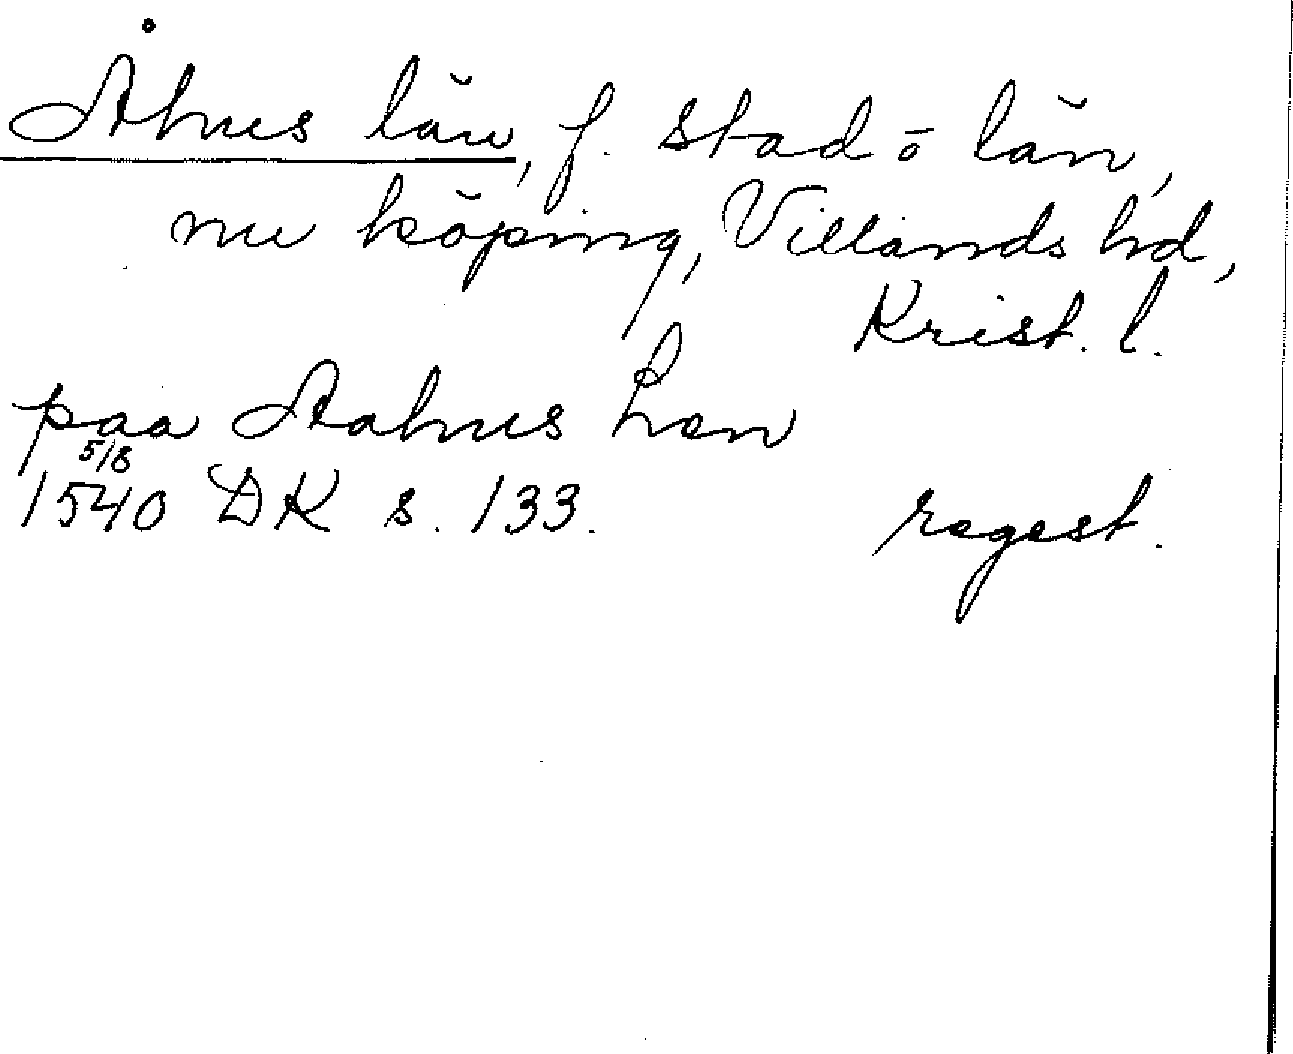 Åhus län, f. stad o län,
nu köping, Villands hd,
Krist. l.
paa Aahus Len
5/8
1540 DK s. 133. regest.